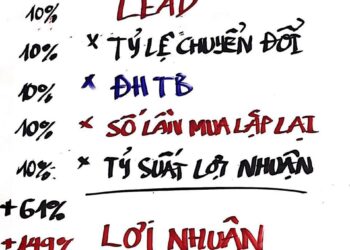 10% LEAD
10% × TỶ LỆ CHUYỂN ĐỔI
10% × ĐHTB
10% × SỐ LẦN MUA LẶP LẠI
10% × TỶ SUẤT LỢI NHUẬN
+61%
+149% LỢI NHUẬN